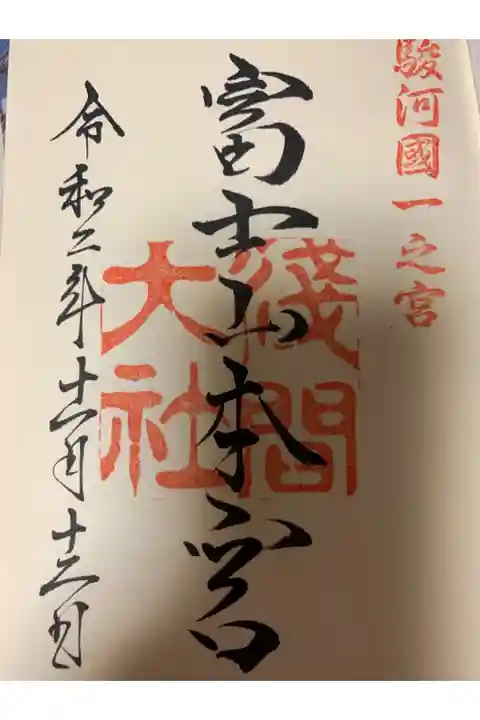 駿河國一之宮
富士山本宮
淺間
大社
令和二年十一月